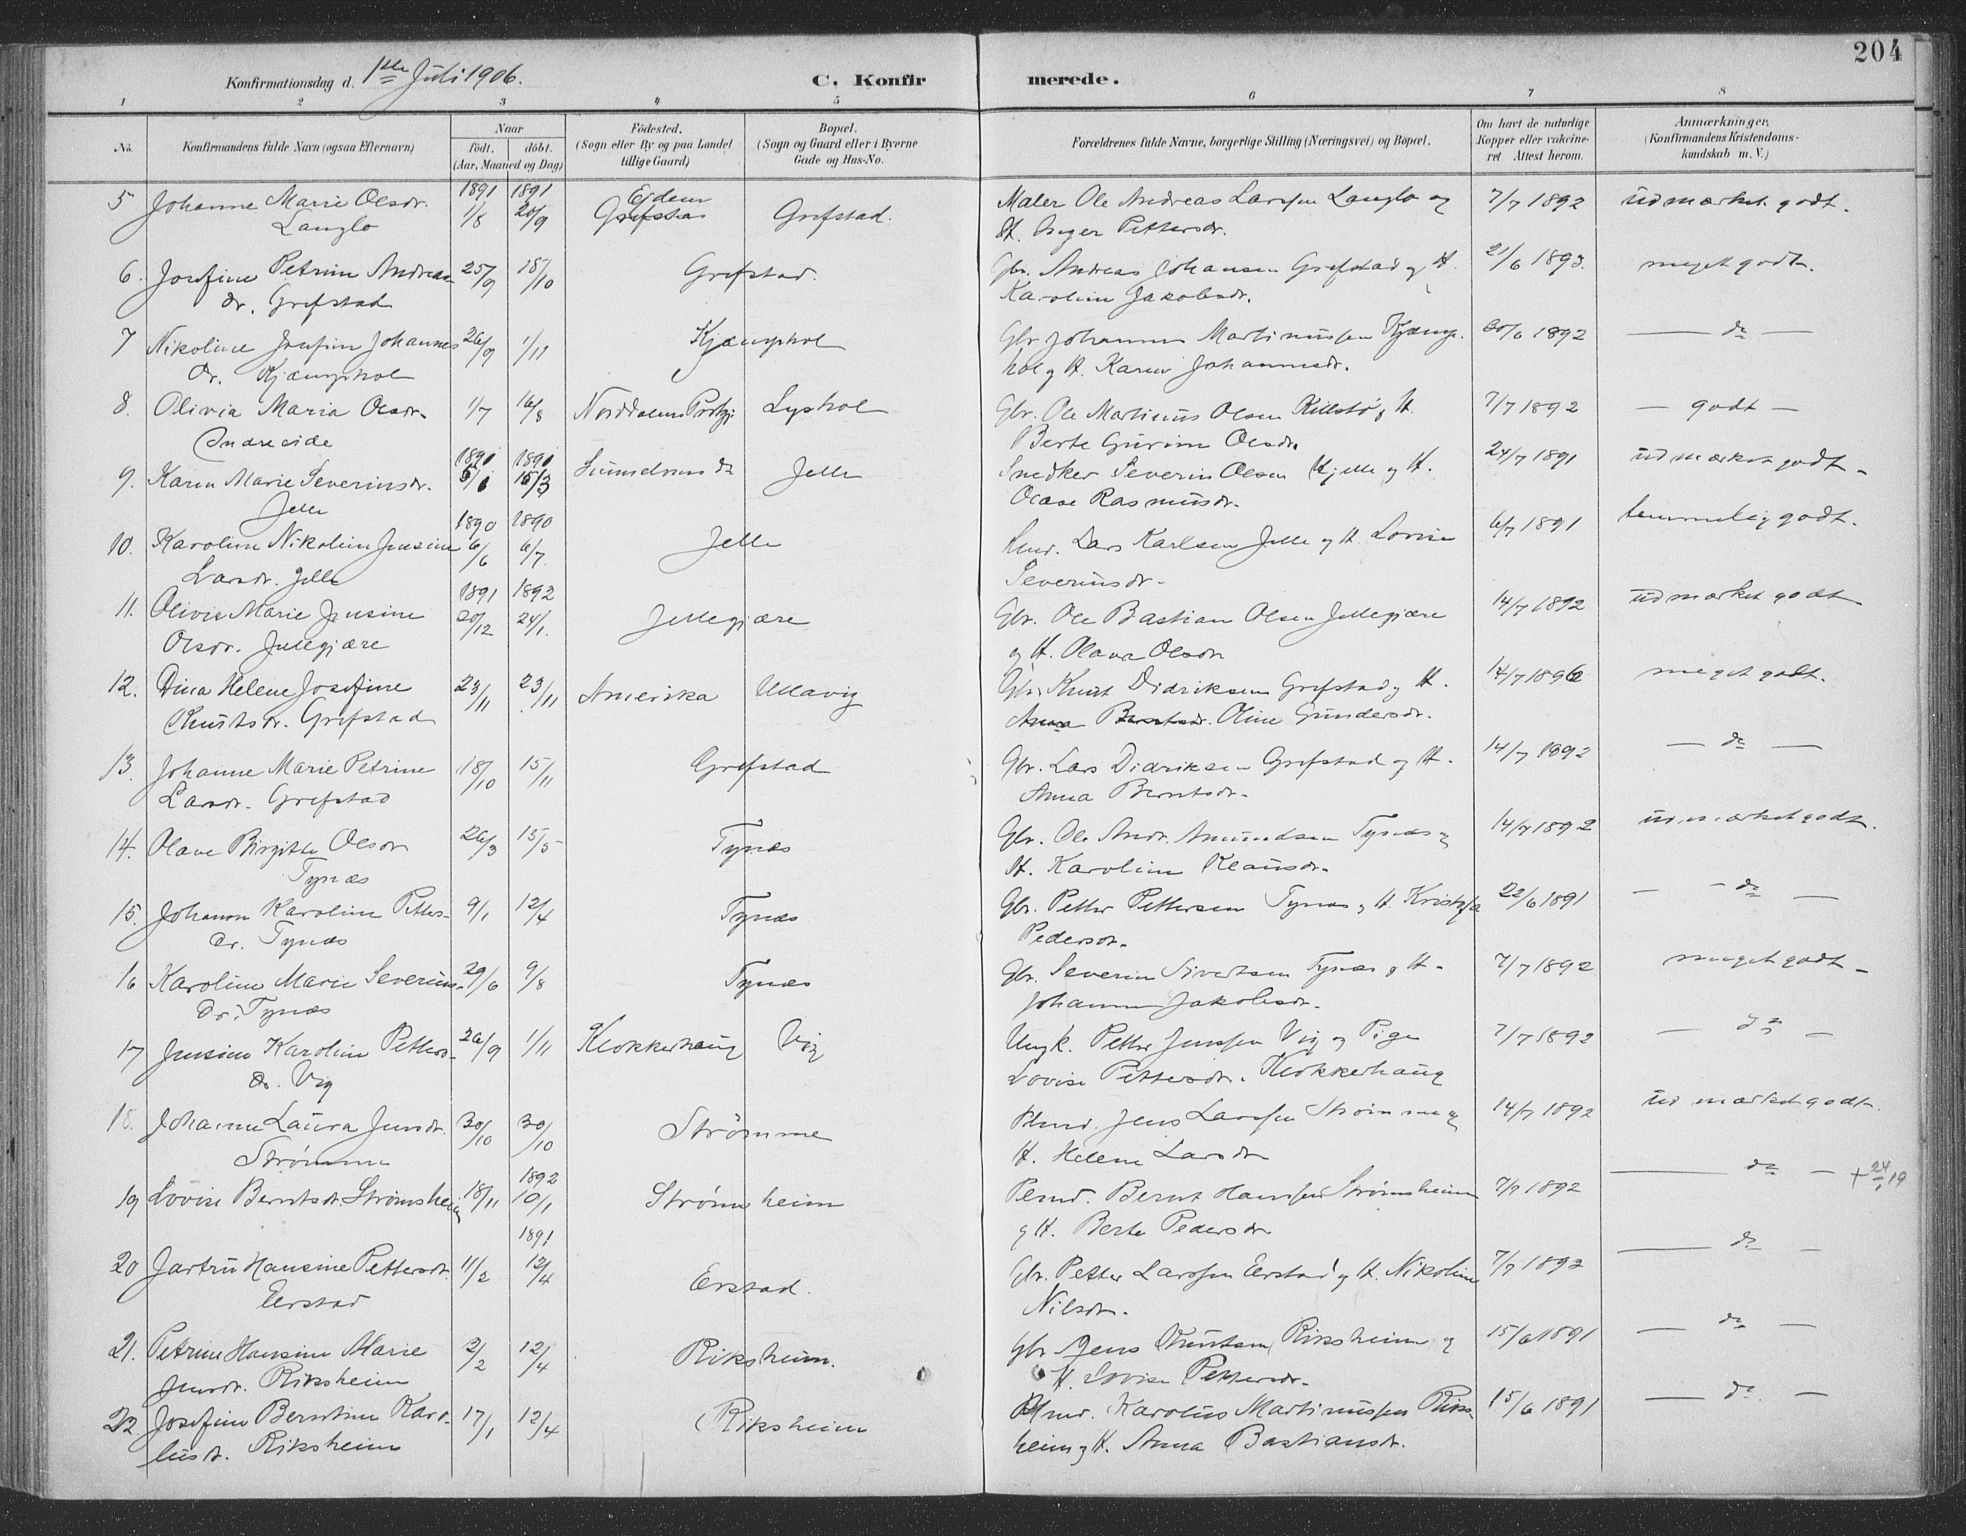 204
Konfirmationsdag d. 1ste Juli 1906. C. Konfirmerede.
1 2 3 4 5 6 7 8
No. Konfirmandens fulde Navn (ogsaa Efternavn) Naar födt. döbt. (Aar, Maaned og Dag) Födested. (Sogn eller By og paa Landet tillige Gaard) Bopæl. (Sogn og Gaard eller i Byerne Gade og Hus-No. Forældrenes fulde Navne, borgerlige Stilling (Næringsvei) og Bopæl. Om havt de naturlige Kopper eller vakcineret Attest herom. Anmærkninger, (Konfirmandens Kristendomskundskab m. V.)
1891 1891 Ejdem
5 Johanne Marie Olsdr. 1/8 20/9 Grefstad. Maler Ole Andreas Larssen Langlo og 7/7 1892 udmærket godt.
Langlo H. Pettersdr.
6. Josefine Petrine Andreas 25/9 18/10 Grefstad. Gbr. Andreas Johansen Grefstad og H. 21/6 1893. meget godt.
dr. Grefstad Karoline Jakobsdr.
7 Nikoline Josefine Johannes 26/9 1/11 Kjæmphol Gbr Johannes Martinussen Kjæmp- 30/6 1892 — do —
dr. Kjæmphol hol og H. Karen Johannesdr.
8. Olivia Maria Olsdr. 1/7 16/8 Norddalens Prstgj Lyshol Gbr. Ole Martinus Olsen og H. 7/7 1892 — godt —
Indreeide Berte Gurine Olsdr.
1891 1891
9. Karen Marie Severinsdr. 15/3 Jelle Snedker Severin Olsen Hjelle og H. 24/7 1891 udmærket godt.
Jelle Olave Rasmusdr.
1890 1890
10. Karoline Nikoline Jensine 6/6 6/7. Jelle Lars Karlsen Jelle og H. Lovise 6/7 1891 temmelig godt.
Larsdr. Jelle Severinsdr.
1891 1892
11. Olivie Marie Jensine 20/12 24/1. Jellegjære Gbr. Ole Bastian Olsen Jellegjære 14/7 1892 udmærket godt
Olsdr. Jellegjære og H. Olava Olsdr
12. Dina Helene Josefine 23/11 23/11 Amerika Ullavig Gbr. Knut Didriksen Grefstad og H. 14/7 1892 meget godt.
Knutsdr. Grefstad Anna Berntsdr. Oline Gundersdr.
13. Johanne Marie Petrine 18/10 15/11 Grefstad Gbr. Lars Didriksen Grefstad og H. 14/7 1892 — do —
Larsdr. Grefstad Anna Berntsdr.
14. Olave Birgitte Olsdr 26/3 15/5 Tynæs Gbr. Ole Andr. Amundsen Tynæs og 14/7 1892 udmærket godt.
Tynæs H. Karoline Klausdr.
15. Johanne Karoline Petters- 9/1 12/4 Tynæs Gbr. Petter Pettersen Tynæs og H. Kristofa 22/6 1891 — do —
dr. Tynæs Pedersdr.
16 Karoline Marie Severins- 29/6 9/8 Tynæs Gbr. Severin Sivertsen Tynæs og H. 7/7 1892 meget godt
dr. Tynæs Johanne Jakobsdr.
17 Jensine Karoline Petters- 26/9 1/11 Klokkerhaug Vig Ungk. Petter Jenssen Vig og Pige 7/7 1892 — do —
dr. Vig Lovise Pettersdr. Klokkerhaug
18. Johanne Laura Jensdr. 30/10 30/10 Strømme Plmd. Jens Larssen Strømme og 14/7 1892 udmærket godt.
Strømme H. Helene Larsdr
1892
19 Lovise Berntsdr. Strømsheim 18/11 10/1 Strømsheim Plmd. Bernt Hanssen Strømsheim 7/7 1892 — do — + 24/1 19
og H. Berte Pedersdr
1891
20 Jartru Hansine Pettersdr. 11/2 12/4 Eerstad. Gbr. Petter Larssen Eerstad og H. Nikoline 7/7 1892 — do —
Eerstad Nilsdr.
21. Petrine Hansine Marie 2/2 12/4 Riksheim. Gbr Jens Knutsen Riksheim og 15/6 1891 — do —
Jensdr. Riksheim H. Lovise Pettersdr.
22. Josefine Berntine Karo- 17/1 12/4 Riksheim Plmd. Karolus Martinussen Riks- 15/6 1891 — do —
lusdr. Riksheim heim og H. Anna Bastiansdr.